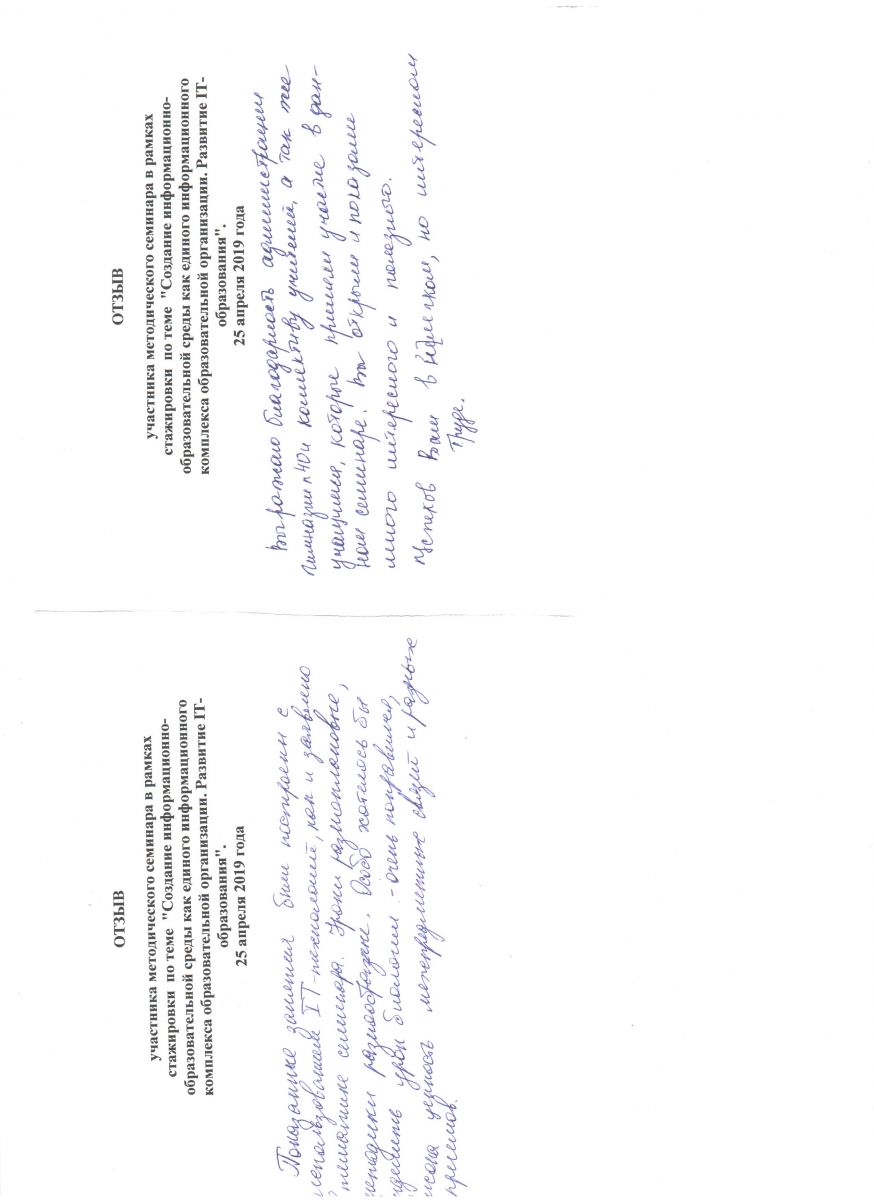 ОТЗЫВ
участника методического семинара в рамках
стажировки по теме "Создание информационно-
образовательной среды как единого информационного
комплекса образовательной организации. Развитие IT-
образования".
25 апреля 2019 года
Показанные занятия были построены с
использованием IT-технологий, как и заявлено
в тематике семинара. Уроки разноплановые,
методики разнообразные. Особо хотелось бы
выделить урок биологии - очень понравился,
ценность межпредметных связей и разных
приемов.
ОТЗЫВ
участника методического семинара в рамках
стажировки по теме "Создание информационно-
образовательной среды как единого информационного
комплекса образовательной организации. Развитие IT-
образования".
25 апреля 2019 года
Выражаю благодарность администрации
гимназии n 40 и коллективу учителей, а так же
учащимся, которые приняли участие в дан-
ном семинаре. Вы открыли и показали
много интересного и полезного.
Успехов Вам в нелегком, но интересном
труде.